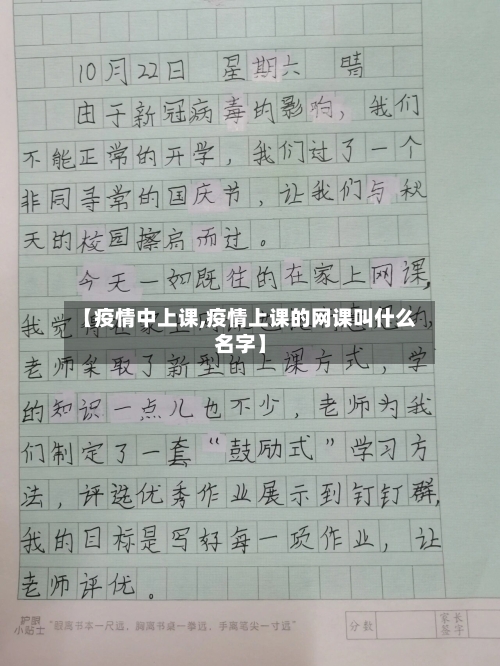 10月22日 星期六 晴
由于新冠病毒的影响，我们
不能正常的开学，我们过了一个
非同寻常的国庆节，让我们与秋
天的校园擦肩而过。
今天一如既往的在家上网课，
我觉得
【疫情中上课,疫情上课的网课叫什么
名字】
的，
老师采取了新型的上课方式，学
的知识一点儿也不少，老师为我
们制定了一套“鼓励式”学习方
法，评选优秀作业展示到钉钉群，
我的目标是写好每一项作业，让
老师评优。
护眼
小贴士
“眼离书本一尺远，胸离书桌一拳远，手离笔尖一寸远”
分数
家长
签字